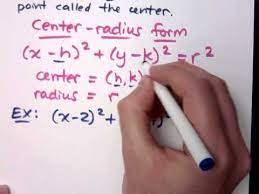 point called the center.
Center-radius form
(x-h)² + (y-k)² = r²
center = (h, k)
radius = r
EX: (x-2)² +